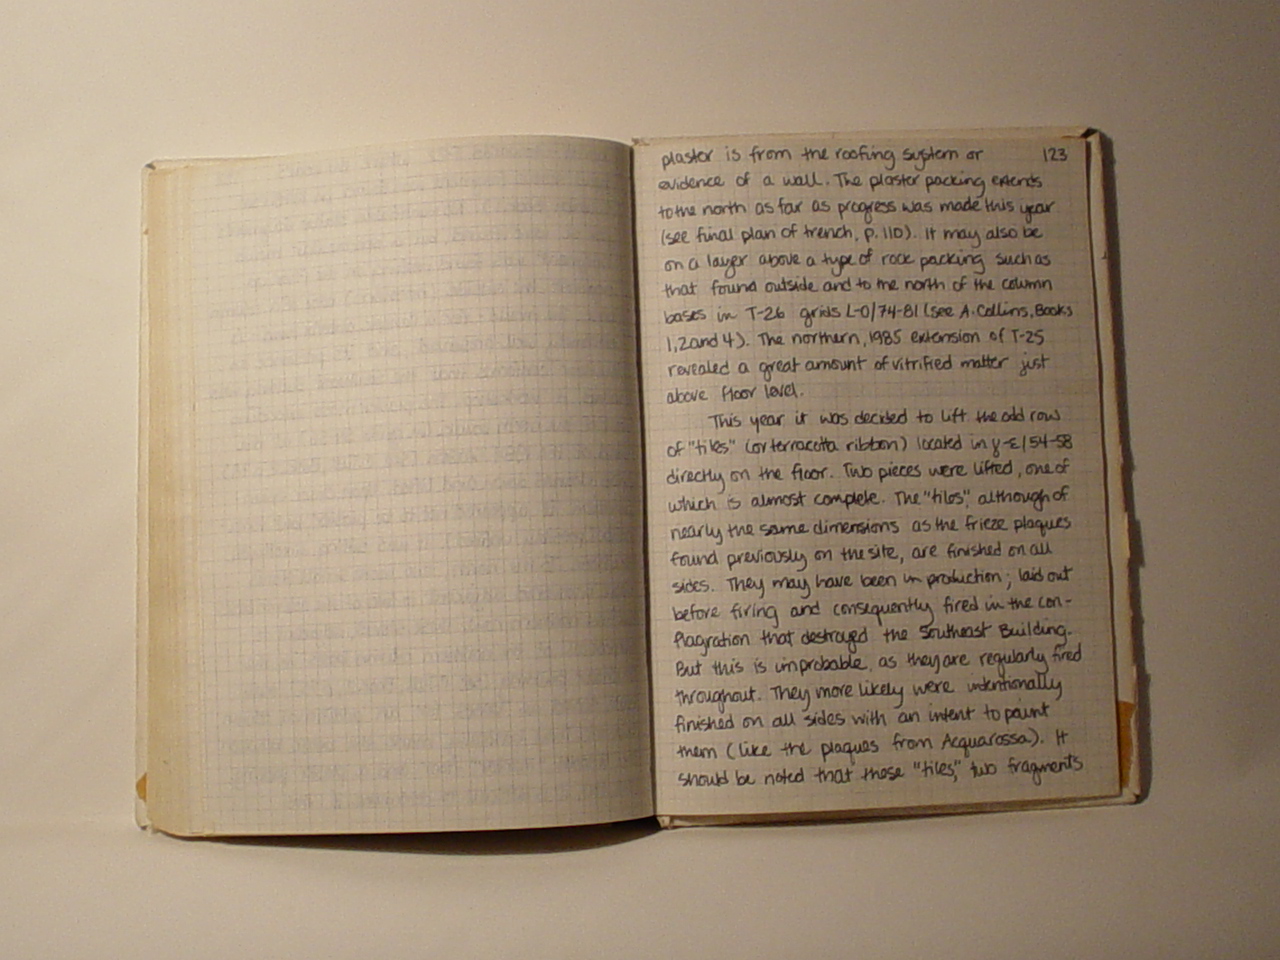 plaster is from the roofing system or 123
evidence of a wall. The plaster packing extends
to the north as far as progress was made this year
(see final plan of trench, p. 110). It may also be
on a layer above a type of rock packing such as
that found outside and to the north of the column
bases in T-26 grids L-O/74-81 (see A. Collins, Books
1, 2 and 4). The northern, 1985 extension of T-25
revealed a great amount of vitrified matter just
above floor level.
This year it was decided to lift the odd row
of "tiles" (or terracotta ribbon) located in γ-ε/54-58
directly on the floor. Two pieces were lifted, one of
which is almost complete. The "tiles", although of
nearly the same dimensions as the frieze plaques
found previously on the site, are finished on all
sides. They may have been in production; laid out
before firing and consequently fired in the con-
flagration that destroyed the Southeast Building.
But this is improbable, as they are regularly fired
throughout. They more likely were intentionally
finished on all sides with an intent to paint
them (like the plaques from Acquarossa). It
should be noted that these "tiles," two fragments